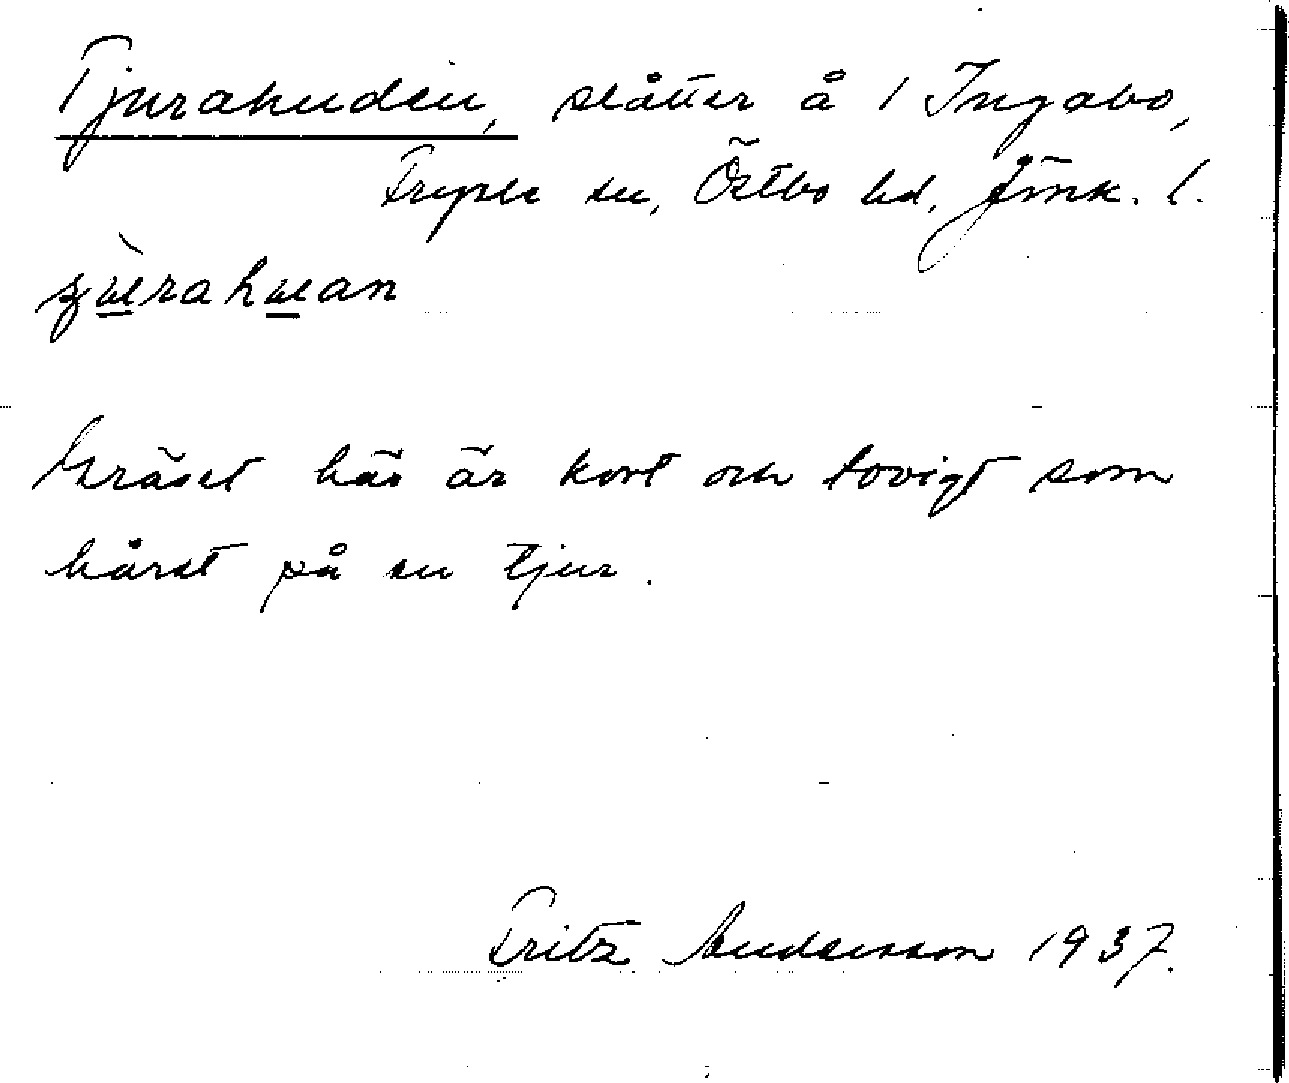 Tjurahuden, slåtter å 1 Ingabo,
Fryele sn, Östbo hd, Jönk. l.
Gräset här är kort och tovigt som
håret på en tjur.
Fritz Andersson 1937.